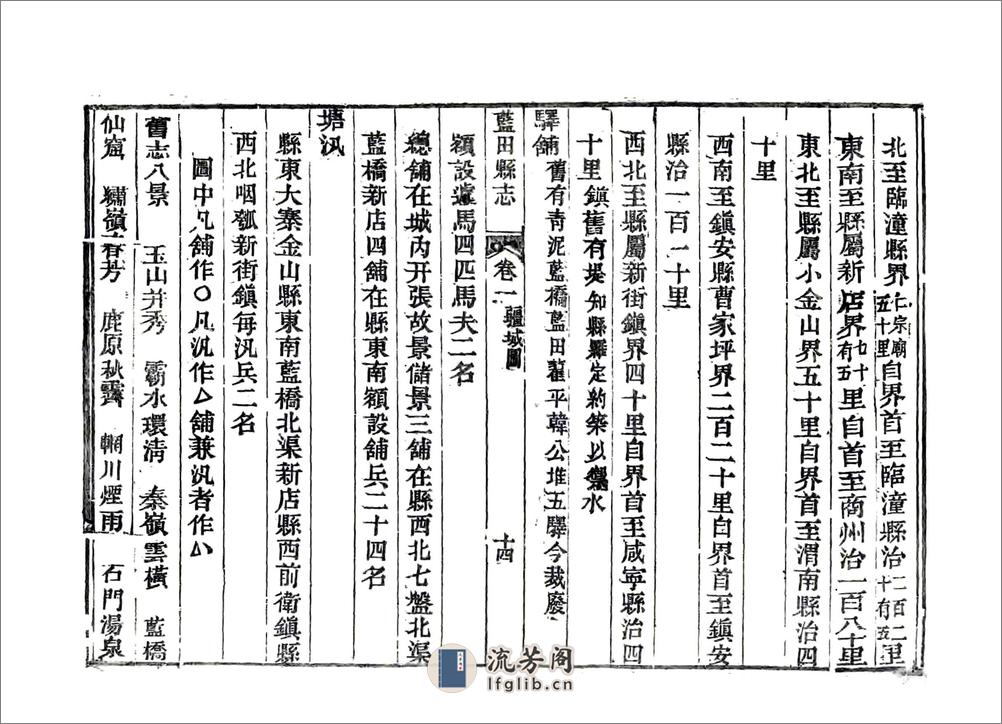 北至臨潼縣界仁宗廟五十里自界首至臨潼縣治一百二十有五里
東南至縣屬新店界七十有五里自首至商州治一百八十里
東北至縣屬小金山界五十里自界首至渭南縣治四
十里
西南至鎮安縣曹家坪界二百二十里自界首至鎮安
縣治一百一十里
西北至縣屬新街鎮界四十里自界首至咸寧縣治四
十里鎮舊有堤知縣定約築以禦水
驛舖舊有靑泥藍橋藍田藿平韓公堆五驛今裁廢
藍田縣志 卷一 疆域圖 十四
額設遞馬四匹馬夫二名
總舖在城內开張故景儲景三舖在縣西北七盤北渠
藍橋新店四舖在縣東南額設舖兵二十四名
塘汛
縣東大寨金山縣東南藍橋北渠新店縣西前衛鎮縣
西北咽瓠新街鎮每汛兵二名
圖中凡舖作○凡汛作△舖兼汛者作
舊志八景 玉山并秀 霸水環淸 秦嶺雲橫 藍橋
仙窟 繡嶺春芳 鹿原秋霽 輞川煙雨 石門湯泉
流芳阁
lfglib.cn